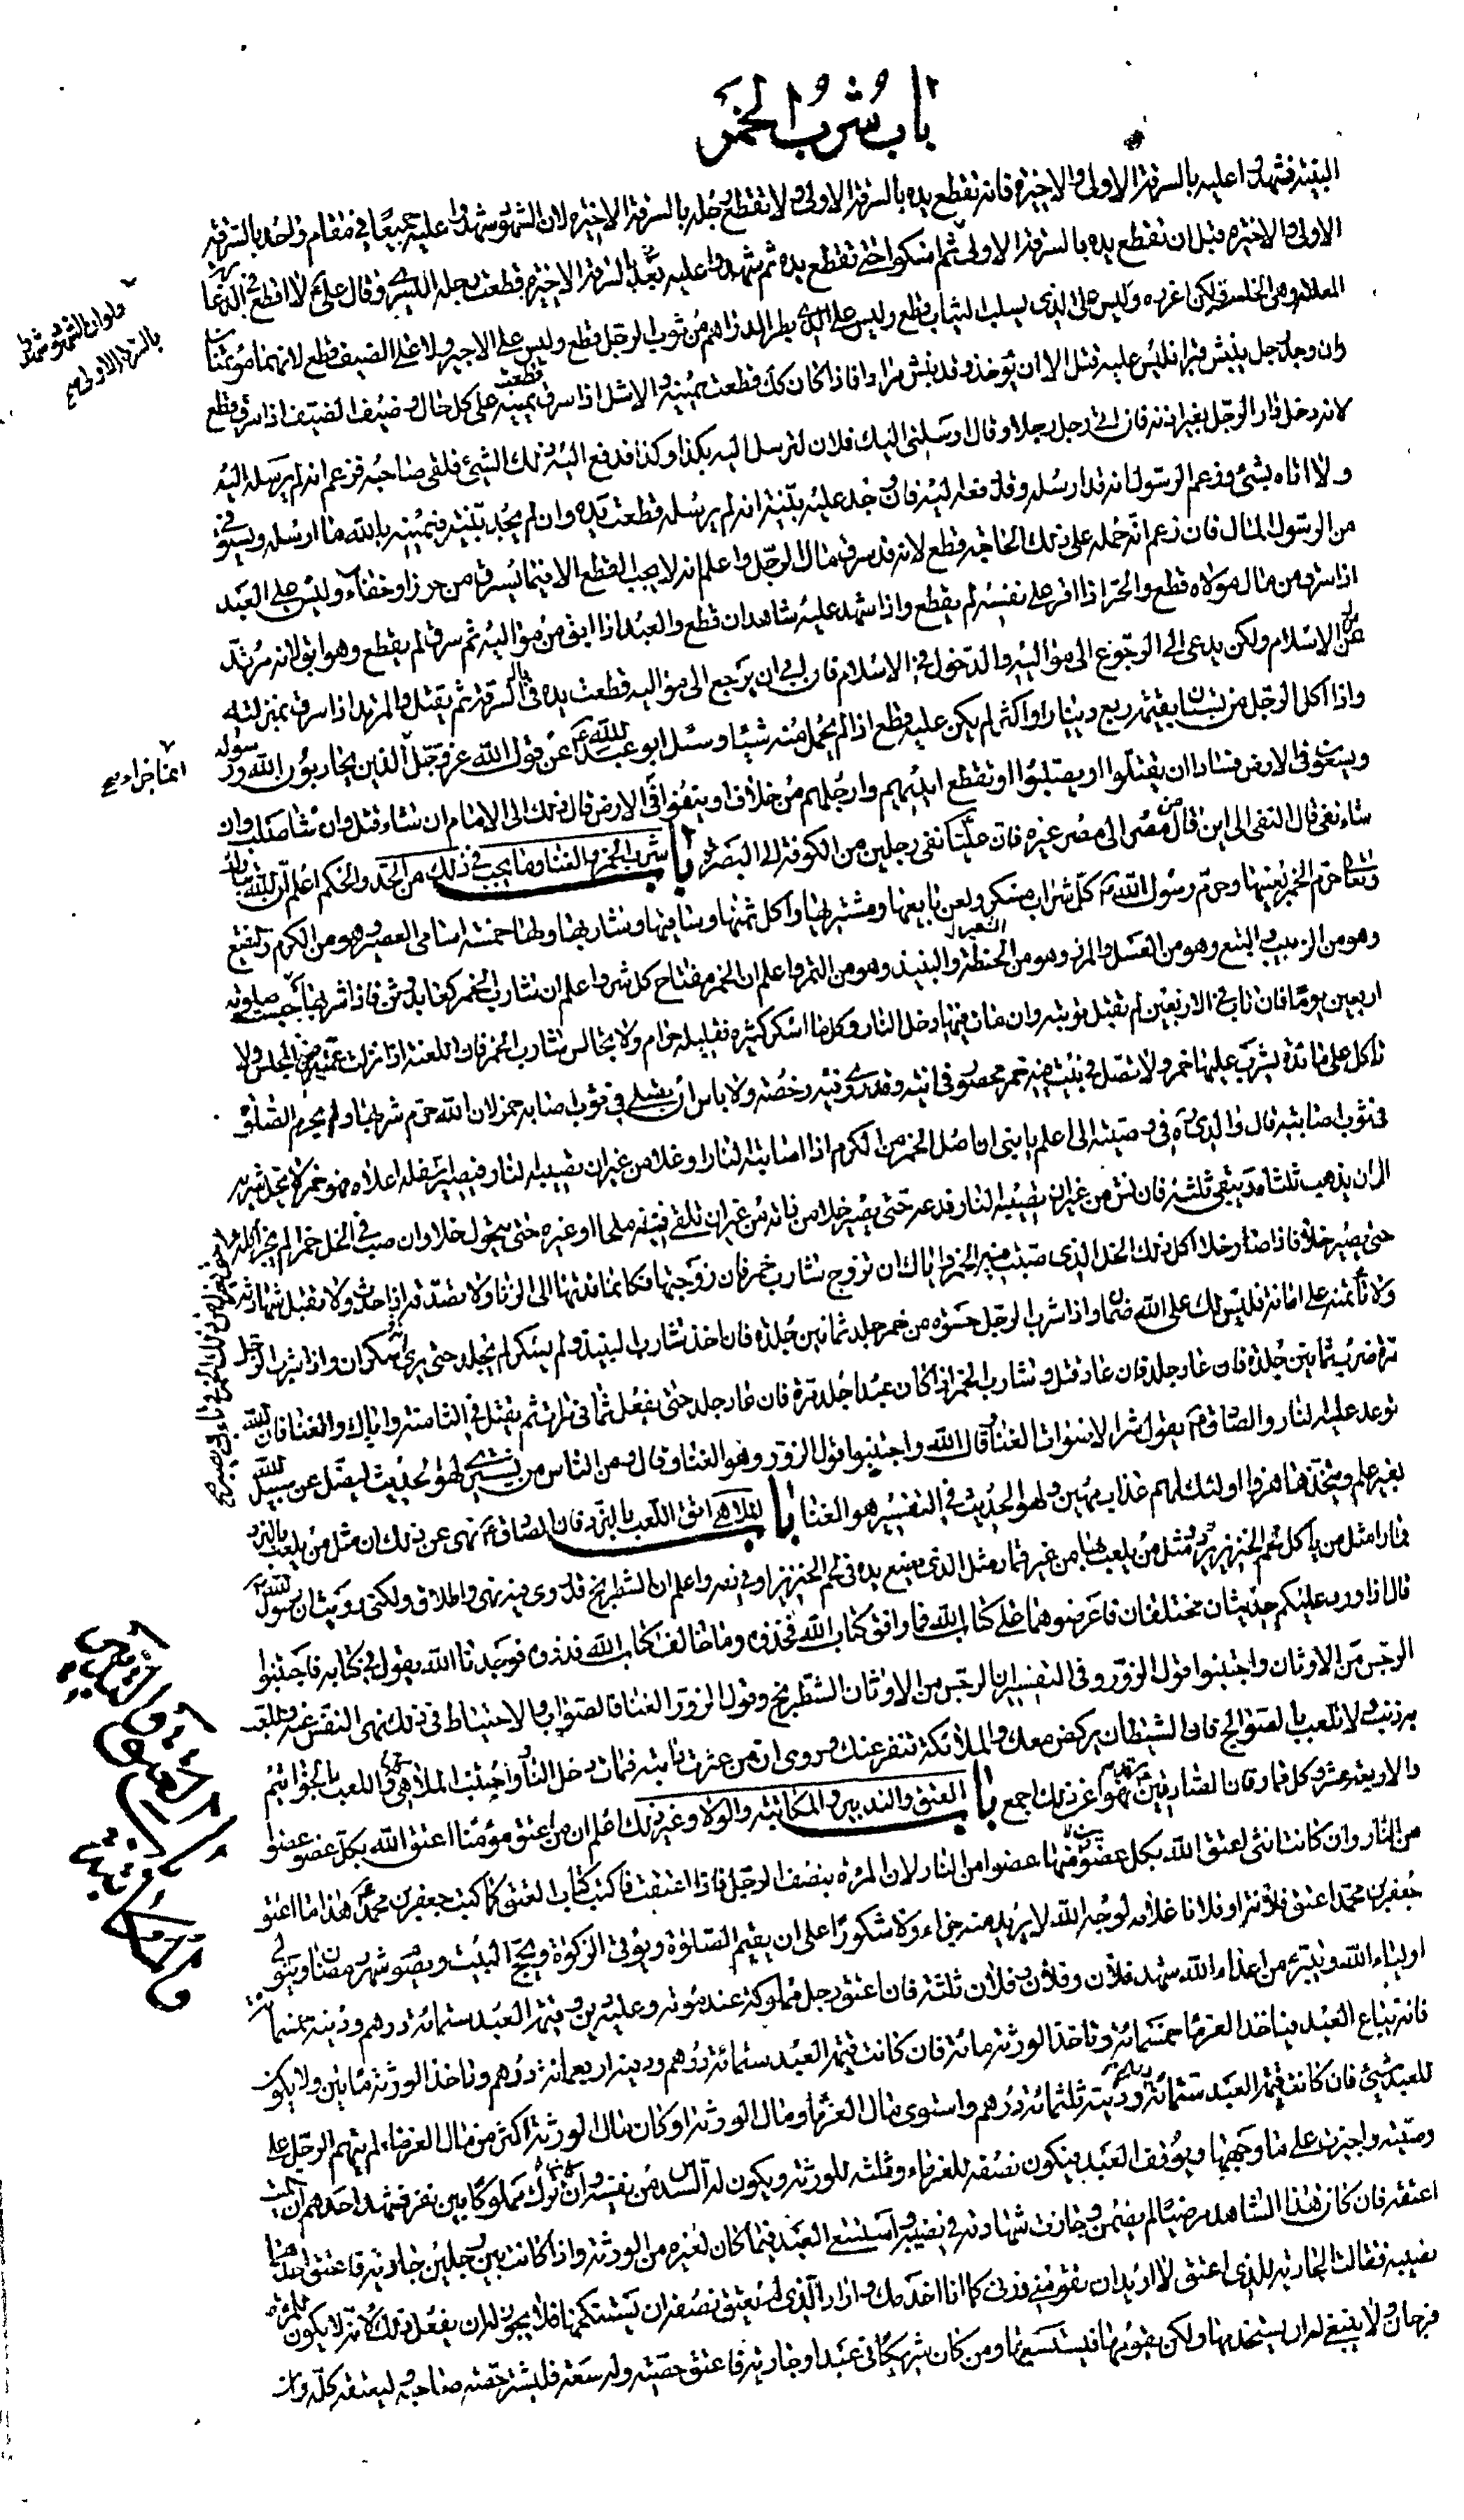 باب شرب الخمر
البينة فشهدوا عليه بالسرقة الاولى والاخيرة فانه تقطع يده بالسرقة الاولى ولا تقطع رجله بالسرقة الاخيرة لان الشهود شهدوا عليه جميعا في مقام واحد بالسرقة
الاولى والاخيرة قبل ان تقطع يده بالسرقة الاولى ثم امسكوا حتى تقطع يده ثم شهدوا عليه بعد بالسرقة الاخيرة قطعت رجله اليسرى وقال علي لا اقطع في الدغارة
المعلنة وهى الخلسة ولكن اعزره وليس على الذى يسلب الثياب قطع وليس على الذى يطر الدراهم من ثوب الرجل قطع وليس على الاجير ولا على الضيف قطع لانهما مؤتمنان
وان وجد رجل ينبش قبرا فليس عليه قتل الا ان يؤخذ وقد نبش مرارا فاذا كان كك قطعت يمينه والاشل اذا سرق قطعت يمينه على كل حال وضيف الضيف اذا سرق قطع
لانه دخل دار الرجل بغير اذنه فان اتى رجل رجلا وقال ارسلنى اليك فلان لترسل اليه بكذا وكذا فدفع اليه ذلك الشئ فلقى صاحبه فزعم انه لم يرسله اليه
ولا اتاه بشئ وزعم الرسول انه قد ارسله وقد دفعه اليه فان وجد عليه بينة انه لم يرسله قطعت يده وان لم يجد بينة فيمينه بالله ما ارسله ويستوفى
من الرسول المال فان زعم انه حمله على ذلك الحاجة قطع لانه قد سرق مال الرجل واعلم انه لا يجب القطع الا فيما يسرق من حرز او خفاء وليس على العبد
اذا سرق من مال مولاه قطع والحر اذا اقر على نفسه لم يقطع واذا شهد عليه شاهدان قطع والعبد اذا ابق من مواليه ثم سرق لم يقطع وهو ابق لانه مرتد
عن الاسلام ولكن يدعى الى الرجوع الى مواليه والدخول في الاسلام فان ابى ان يرجع الى مواليه قطعت يده في السرقة ثم يقتل والمرتد اذا سرق بمنزلته
واذا اكل الرجل من بستان بقيمة ربع دينار او اكثر لم يكن عليه قطع اذا لم يحمل منه شيئا وسئل ابو عبد الله عن قول الله عز وجل الذين يحاربون الله ورسوله
ويسعون في الارض فسادا ان يقتلوا او يصلبوا او تقطع ايديهم وارجلهم من خلاف او ينفوا في الارض قال ذلك الى الامام ان شاء قتل وان شاء صلب وان
شاء نفى قال النفى الى اين قال من مصر الى مصر غيره فان عليا نفى رجلين من الكوفة الى البصرة باب شرب الخمر والغناء وما يجب في ذلك من الحد والحكم اعلم ان الله تبارك
وتعالى حرم الخمر بعينها وحرم رسول الله كل شراب مسكر ولعن بايعها ومشتريها واكل ثمنها وساقيها وشاربها ولها خمسة اسامى العصير وهو من الكرم والنقيع
وهو من الزبيب والبتع وهو من العسل والمزر وهو من الحنطة والنبيذ وهو من التمر واعلم ان الخمر مفتاح كل شر واعلم ان شارب الخمر كعابد وثن فاذا شربها حبست صلوته
اربعين يوما فان تاب في الاربعين لم تقبل توبته وان مات فيها دخل النار وكلما اسكر كثيره فقليله حرام ولا تجالس شارب الخمر فان اللعنة اذا نزلت عمت من في المجلس ولا
تاكل على مائدة يشرب عليها خمر ولا تصل في بيت فيه خمر محصور في انية وقد روى فيه رخصة ولا باس ان يصلى في ثوب اصابه خمر لان الله حرم شربها ولم يحرم الصلوة
في ثوب اصابته قال والدى في وصيته الى اعلم يا بنى ان اصل الخمر من الكرم اذا اصابته النار او غلا من غير ان تصيبه النار فيصير اسفله اعلاه فهو خمر لا يحل شربه
الا ان يذهب ثلثاه ويبقى ثلثه فان نش من غير ان تصيبه النار فدعه حتى يصير خلا من ذاته من غير ان تلقى فيه ملحا او غيره حتى يتحول خلا وان صب في الخل خمر لم يجز اكله
حتى يصير خلا فاذا صار خلا اكل ذلك الخل الذى صبت فيه الخمر واياك ان تزوج شارب خمر فان زوجتها فكانما قدتها الى الزنا ولا تصدقه اذا حدث ولا تقبل شهادته
ولا تأتمنه على امانة فليس لك على الله ضمان واذا شرب الرجل حسوة من خمر جلد ثمانين جلدة فان اخذ شارب النبيذ ولم يسكر لم يجلد حتى يرى سكران واذا شرب الرجل
مرة ضرب ثمانين جلدة فان عاد جلد فان عاد قتل وشارب الخمر اذا كان عبدا جلد مرة فان عاد جلد حتى يفعل ثمانى مرات ثم يقتل في الثامنة واياك والغناء فان الله
توعد عليه النار والصادق يقول شر الاصوات الغناء قال الله واجتنبوا قول الزور وهو الغناء وقال ومن الناس من يشترى لهو الحديث ليضل عن سبيل الله
بغير علم ويتخذها هزوا اولئك لهم عذاب مهين ولهو الحديث في التفسير هو الغناء باب الملاهى اتق اللعب بالنرد فان الصادق نهى عن ذلك ان مثل من يلعب بالنرد
قمارا مثل من ياكل لحم الخنزير ومثل من يلعب بها من غير قمار مثل الذى يضع يده في لحم الخنزير او في دمه واعلم ان الشطرنج قد روى فيه نهى واطلاق ولكنى رويت ان رسول الله
قال اذا ورد عليكم حديثان مختلفان فاعرضوهما على كتاب الله فما وافق كتاب الله فخذوه وما خالف كتاب الله فذروه فوجدنا الله يقول في كتابه فاجتنبوا
الرجس من الاوثان واجتنبوا قول الزور وفى التفسير ان الرجس من الاوثان الشطرنج وقول الزور الغناء فالصواب والاحتياط في ذلك نهى النفس عنه واللعب
به ذنب ولا تلعب بالصوالج فان الشيطان يركض معك والملائكة تنفر عنك وروى ان من عثرت دابته فمات دخل النار واجتنب الملاهى كلها واللعب بالخواتيم
والاربعة عشر وكل قمار فان الصادقين نهوا عن ذلك اجمع باب العتق والتدبير والمكاتبة والولاء وغير ذلك اعلم ان من اعتق مؤمنا اعتق الله بكل عضو عضوا
من النار وان كانت انثى اعتق الله بكل عضوين منها عضوا من النار لان المرأة بنصف الرجل فاذا اعتقت فاكتب كتاب العتق كما كتب جعفر بن محمد هذا ما اعتق
جعفر بن محمد اعتق فلانة او فلانا غلامه لوجه الله لا يريد منه جزاء ولا شكورا على ان يقيم الصلوة ويؤتى الزكوة ويحج البيت ويصوم شهر رمضان ويتولى
اولياء الله ويتبرء من اعداء الله شهد فلان وفلان وفلان ثلثة فان اعتق رجل مملوكه عند موته وعليه دين وقيمة العبد ستمائة درهم ودينه خمسمائة
فانه يباع العبد فياخذ الغرماء خمسمائة وتاخذ الورثة مائة فان كانت قيمة العبد ستمائة درهم ودينه اربعمائة درهم وتاخذ الورثة مأتين ولا يكون
للعبد شئ فان كانت قيمة العبد ستمائة ودينه ثلثمائة درهم واستوى مال الغرماء ومال الورثة او كان مال الورثة اكثر من مال الغرماء لم يتهم الرجل على
وصيته واجيزت على ما وجهها ويوقف العبد فيكون نصفه للغرماء وثلثه للورثة ويكون له السدس من نفسه وان ترك مملوكا بين نفر فشهد احدهم ان الميت
اعتقه فان كان هذا الشاهد مرضيا لم يضمن وجازت شهادته في نصيبه واستسعى العبد فيما كان لغيره من الورثة واذا كانت بين رجلين جارية فاعتق احدهما
نصيبه فقالت الجارية للذى اعتق لا اريد ان تقومنى ذرنى كما انا اخدمك واراد الذى لم يعتق نصفه ان يستنكحها فلا يجوز له ان يفعل ذلك لانه لا يكون للمرئة
فرجان ولا ينبغى له ان يستخدمها ولكن يقومها فيستسعيها ومن كان شريكا في عبد او جارية فاعتق حصته وله سعة فليشتر حصة صاحبه وليعتقه كله وان
ولو ان الشهود شهدوا
بالسرقة الاولى
انما جزاء